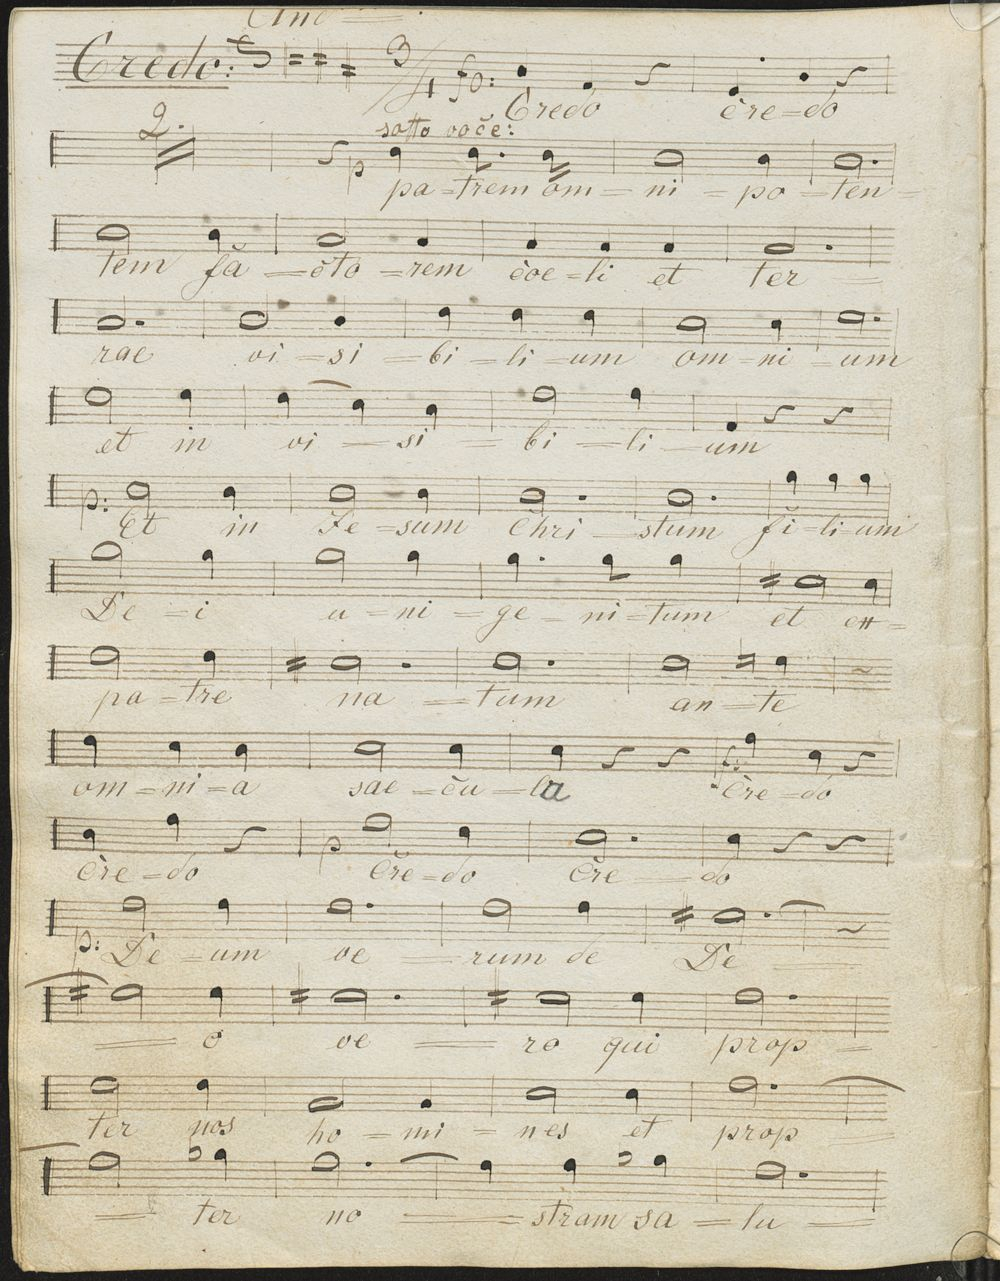 And
Credo: 3/4 fo: Credo cre-do
2. sotto voce:
p pa-trem om-ni-po-ten-
tem fa-cto-rem coe-li et ter-
rae vi-si-bi-li-um om-ni-um
et in vi-si-bi-li-um
p: Et in Je-sum Chri-stum fi-li-um
De-i u-ni-ge-ni-tum et ex
pa-tre na-tum an-te
om-ni-a sae-cu-la cre-do
cre-do p cre-do cre-do
p: De-um ve-rum de De
o ve-ro qui prop-
ter nos ho-mi-nes et prop-
ter no-stram sa-lu-